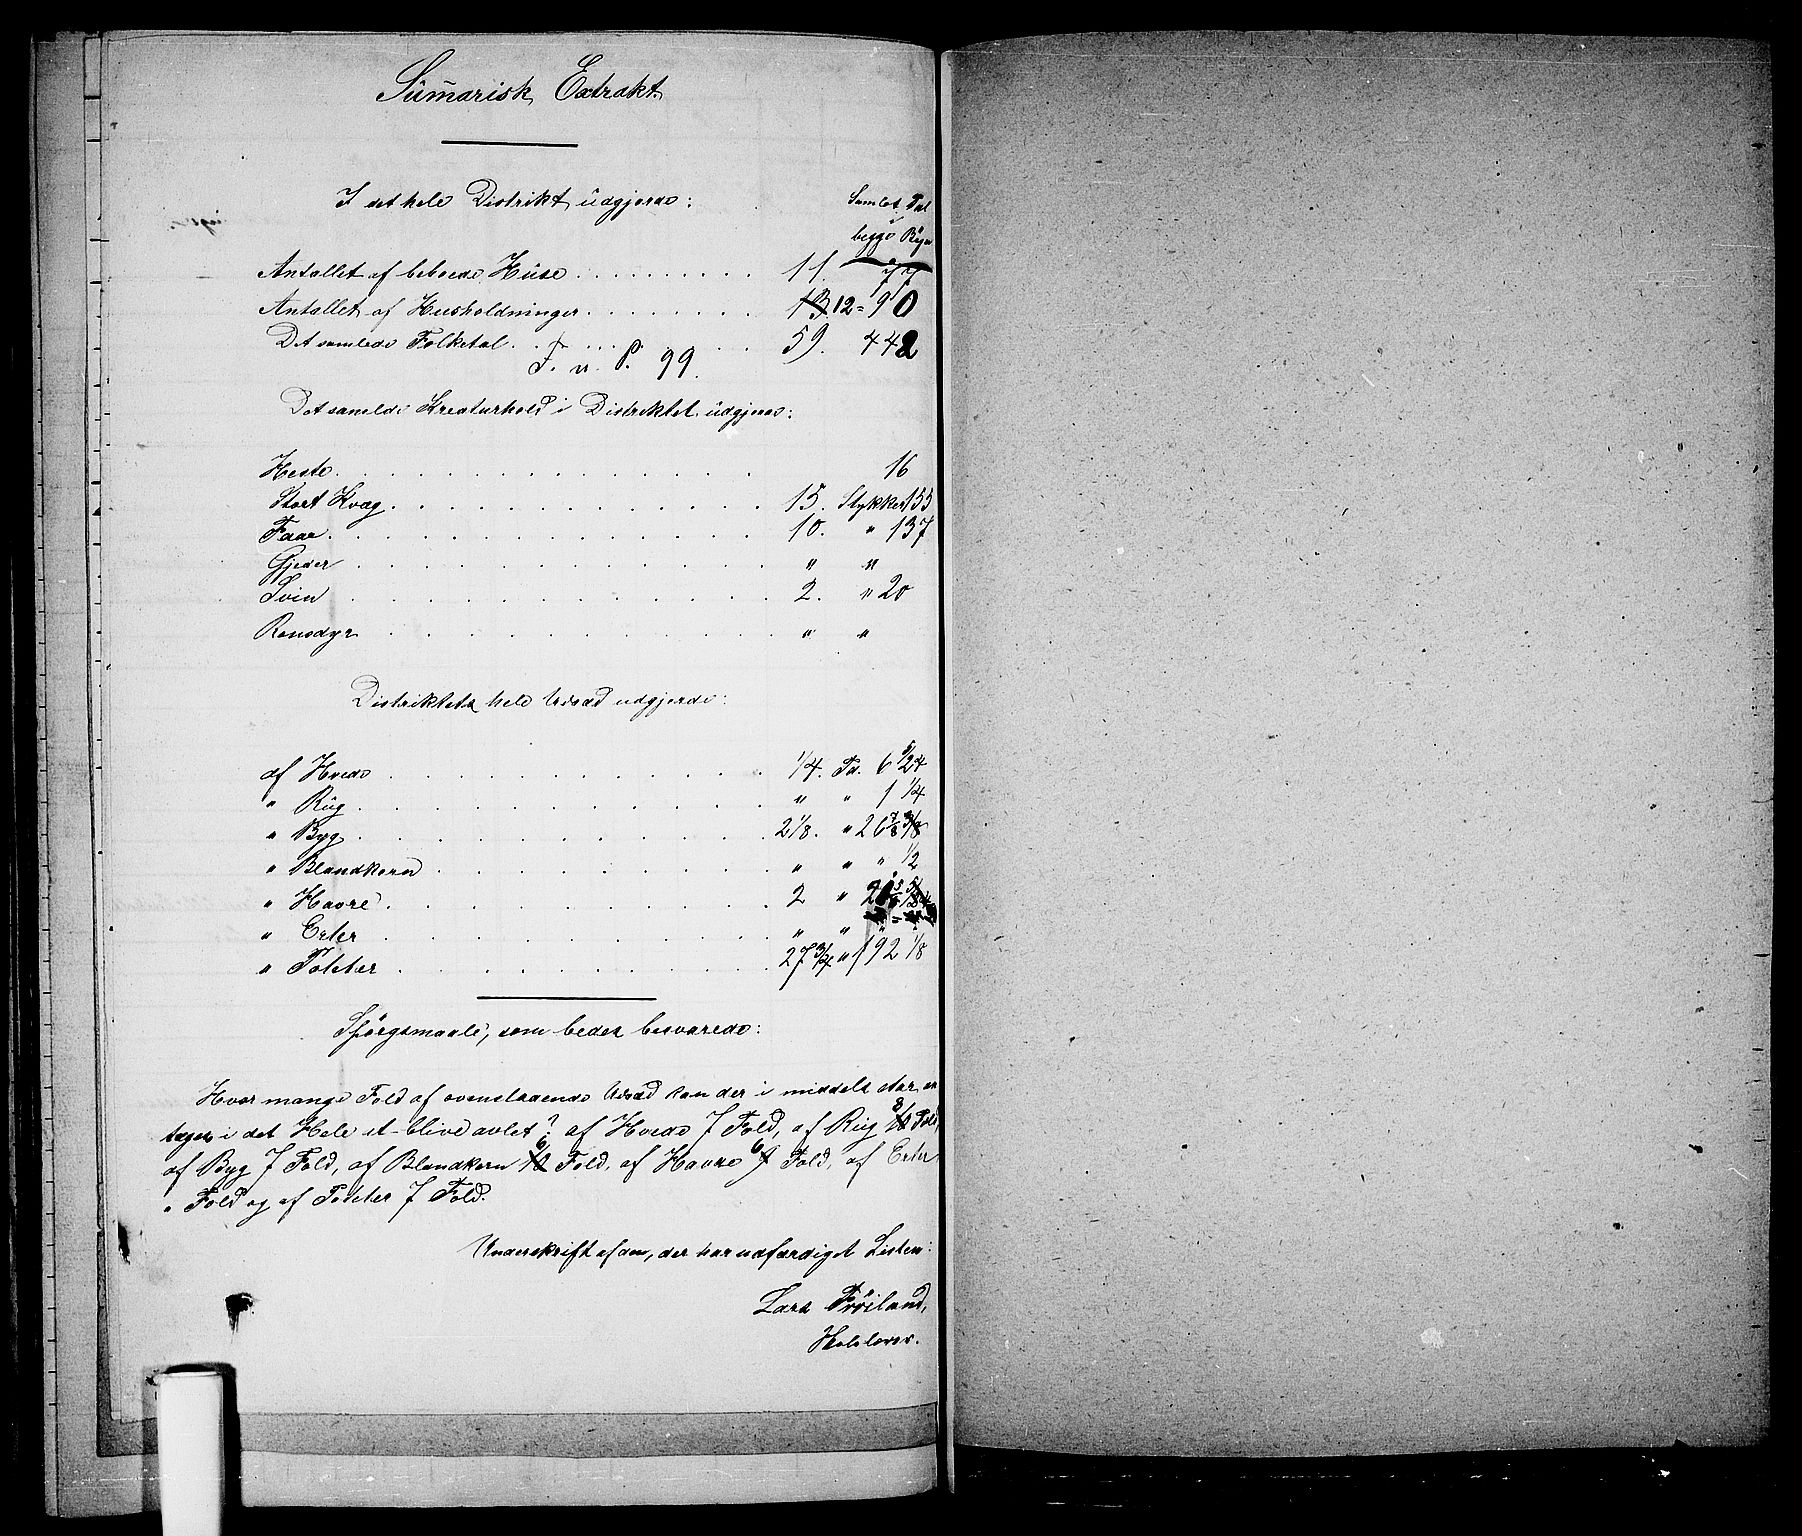 Sum̄arisk Extrakt.
I det hele Distrikt udgjorde:
Samlet Tal
i
begge Rôgn
Antallet af beboede Huse . . . . . . . . . . 11. 77
Antallet af Husholdninger . . . . . . . . 13 12 = 90
Det samlede Folketal . . . . . . . 59. 442
F. n. P. 99.
Det samlede Kreaturhold i Distriktet udgjorde:
Heste . . . . . . . . . . . 16
Stort Kvæg . . . . . . . . . . 15. Stykker 155
Faar . . . . . . . . . . . . 10. " 137
Gjeder . . . . . . . . . . . " "
Svin . . . . . . . . . . . 2. " 20
Rensdyr . . . . . . . . . . " "
Distriktets hele Udsæd udgjorde:
af Hvede . . . . . . . . . . 1/4. Td. 6 5/24
" Rug . . . . . . . . . . . " " 1 1/4
" Byg . . . . . . . . . . . 2 1/8. " 26 7/8 3/8
" Blandkorn . . . . . . . . . " " " 1/2
" Havre . . . . . . . . . . 2 "
" Erter . . . . . . . . . . " " "
" Poteter . . . . . . . . . . 27 3/4 " 192 1/8
Spörgsmaale, som bedes besvarede:
Hvor mange Fold af ovenstaaende Udsæd kan der i middels Aar an
tages i det Hele at blive avlet? af Hvede 7 Fold, af Rug 10 8 Fold,
af Byg 7 Fold, af Blandkorn 10 6 Fold, af Havre 9 6 Fold, af Erter
" Fold og af Poteter 7 Fold.
Underskrift af den, der har udfærdiget Listen:
Lars Fröiland,
Holdlærer.